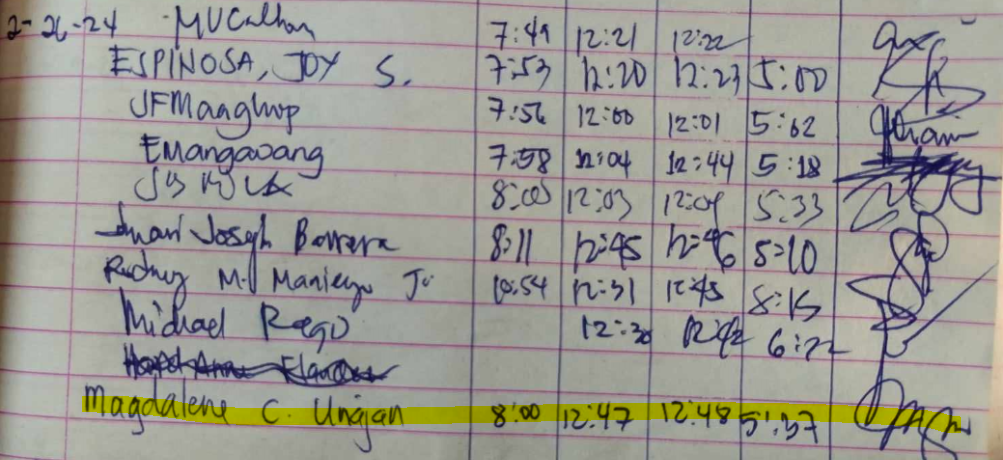 2-26-24 MVCalhon 7:49 12:21 12:22
ESPINOSA, JOY S. 7:53 12:20 12:23 5:00
JFMaaghop 7:56 12:00 12:01 5:02
EMangaoang 7:58 12:04 12:44 5:18
8:00 12:03 12:04 5:33
Joseph Barrera 8:11 12:45 12:46 5:10
Rodney M. Maniego Jr 10:54 12:31 12:45 8:15
Michael 12:30 12:42 6:22
Magdalene C. Ungjan 8:00 12:47 12:48 5:37